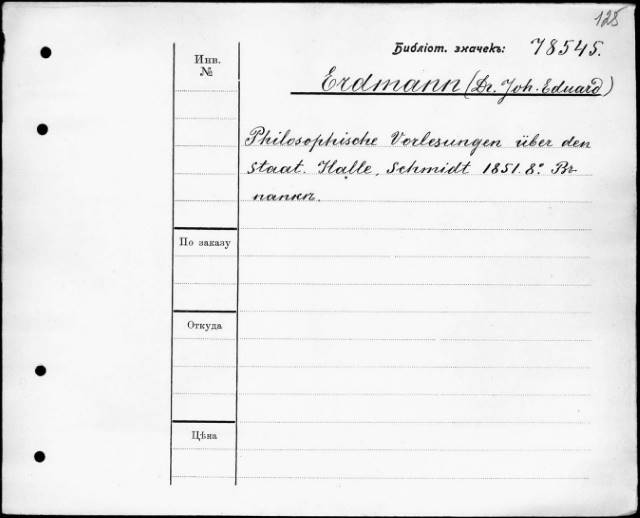 128
Библіот. значекъ: 78545.
Инв.
№
Erdmann (Dr. Joh. Eduard)
Philosophische Vorlesungen über den
Staat. Halle, Schmidt 1851. 8º. Въ
папкѣ.
По заказу
Откуда
Цѣна